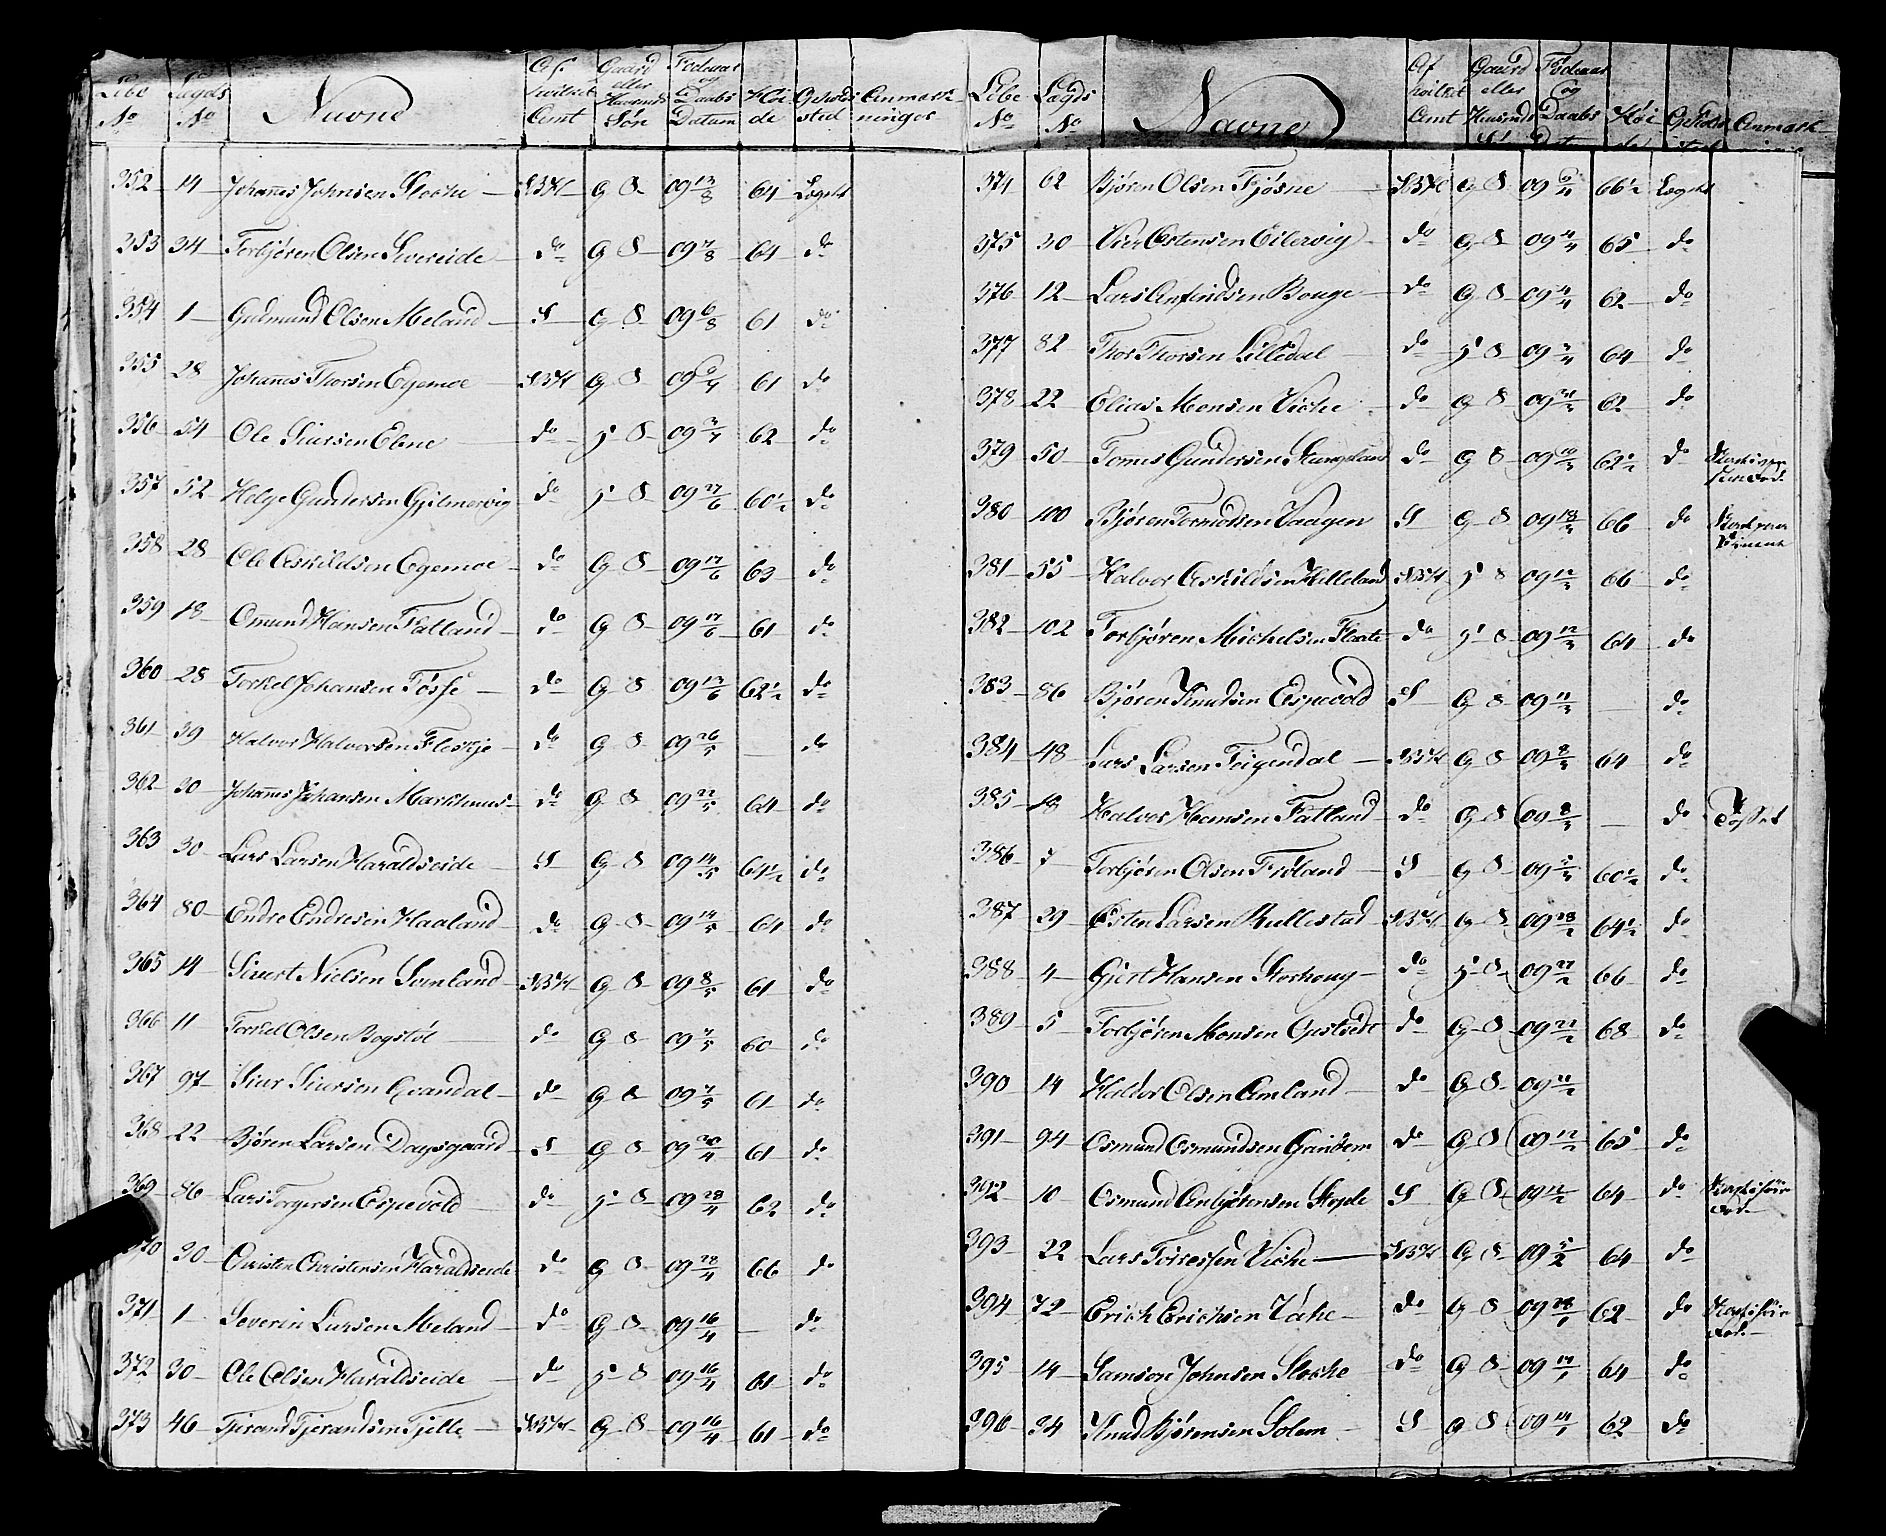 Löbe No | Lægds No | Navne | Af hvilket Amt | Gaard eller Huusmds Søn | Födeaar og Daabs Datum | Höide | Opholdssted | Anmærkninger
352 14 Johannes Johnsen Stoche SBA G S 09 13/8 64 Lægdet
353 34 Torbjören Olsen Sivereide do G S 09 7/8 64 do
354 1 Gudmund Olsen Meland S G S 09 6/8 61 do
355 28 Johanes Thorsen Egemoe SBA G S 09 61 do
356 54 Ole Siursen Ebne do S 09 62 do
357 52 Helge Gundersen Gjilmervig do S 09 27/6 60½ do
358 28 Ole Askildsen Egemoe do G S 09 17/6 63 do
359 18 Omund Hansen Fatland do G S 09 17/6 61 do
360 28 Torkel Johansen Fosse do G S 09 13/6 62½ do
361 39 Halvor Halvorsen Fleskje do G S 09 26/5 — do
362 30 Johannes Johansen Markhuus do G S 09 22/5 64 do
363 30 Lars Larsen Haraldseide S G S 09 14/5 64½ do
364 80 Endre Endresen Haaland do G S 09 14/5 64 do
365 14 Sivert Nielsen Svinland SBA G S 09 8/5 61 do
366 11 Torkel Olsen Bogstöl do G S 09 7/5 60 do
367 97 Siur Siursen Qvandal do G S 09 7/5 61 do
368 22 Björen Larsen Dagsgaard S G S 09 30/4 61 do
369 86 Lars Torgersen Espevold do S 09 28/4 62 do
370 30 Christen Christensen Haraldseide do G S 09 28/4 66 do
371 1 Severin Larsen Meland do G S 09 16/4 — do
372 30 Ole Olsen Haraldseide do S 09 16/4 61 do
373 46 Tjerand Tjerandsen Tjelle SBA G S 09 16/4 61 do
Löbe No | Lægds No | Navne | Af hvilket Amt | Gaard eller Huusmds | Födeaar og Daabs | Höi | Opholds | Anmærk
374 62 Björen Olsen Fjösne SBA G S 09 66½ Lægdet
375 30 Østensen Eilervig do G S 09 65 do
376 12 Lars Anfindsen Bouge do G S 09 62 do
377 82 Thor Thorsen Lilledal do S 09 64 do
378 22 Elias Monsen Viche do G S 09 31/3 62 do
379 50 Tomes Gundersen Stangeland do G S 09 62½ do
380 100 Björen Tormodsen Vaagen S G S 09 18/3 66 do
381 55 Halvor Askildsen Helleland SBA S 09 12/3 66 do
382 102 Torbjören Michelsen Flaate do S 09 12/3 64 do
383 86 Björen Knudsen Espevold S G S 09 11/3 — do
384 48 Lars Larsen Teigendal SBA G S 09 8/3 64 do
385 18 Halvor Hansen Fatland do G S 09 8/3 — do Tosset
386 Torbjören Olsen Fröland S G S 09 60½ do
387 39 Østen Larsen Rullestad SBA G S 09 28/2 64½ do
388 4 Gjert Hansen Storhoug do S 09 27/2 66 do
389 5 Torbjören Monsen Austvide do G S 09 68 do
390 14 Haldor Olsen Amland do G S 09
391 94 Osmund Osmundsen Grindem do G S 09 12/2 65 do
392 10 Osmund Anbjörensen Stople S G S 09 12/2 64 do
393 22 Lars Torressen Viche SBA G S 09 5/2 64 do
394 72 Erich Erichsen Vahe do G S 09 28/1 62 do
395 14 Samson Johnsen Stoche do G S 09 64 do
396 34 Knud Björensen Solem S G S 09 14/1 62 do